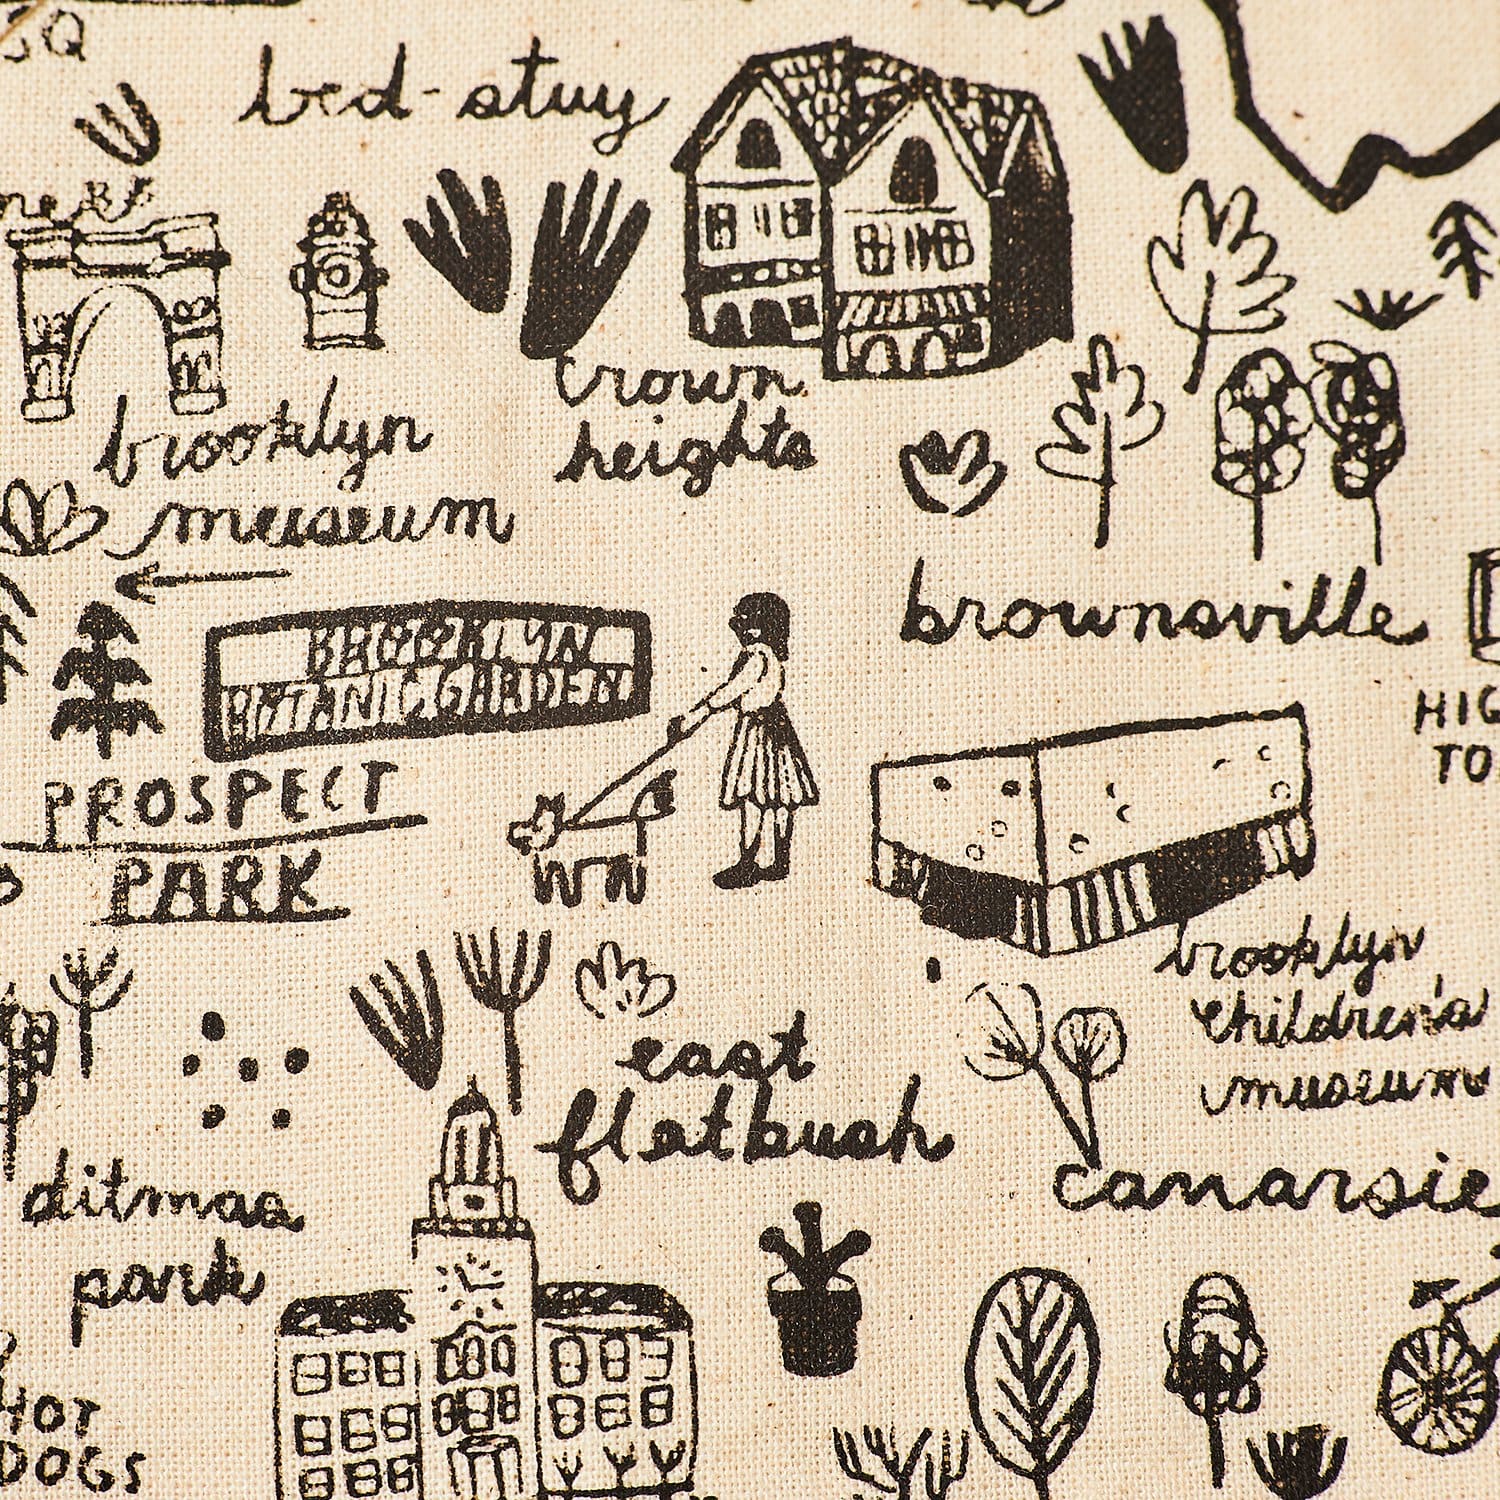 SQ
bed-stuy
crown
heights
brooklyn
museum
BROOKLYN
BOTANIC GARDEN
brownsville
HIG
TO
PROSPECT
PARK
brooklyn
children's
museum
east
flatbush
canarsie
ditmas
park
HOT
DOGS